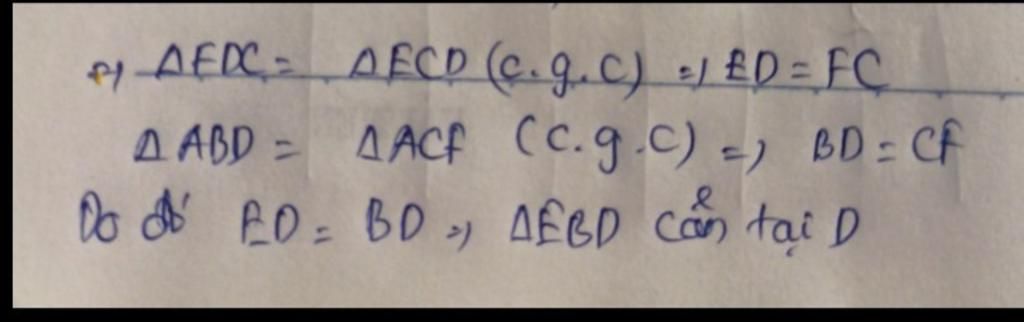 => ΔEDC = ΔECD (c.g.c) => ED = FC
ΔABD = ΔACF (c.g.c) => BD = CF
Do đó ED = BD => ΔEBD cân tại D